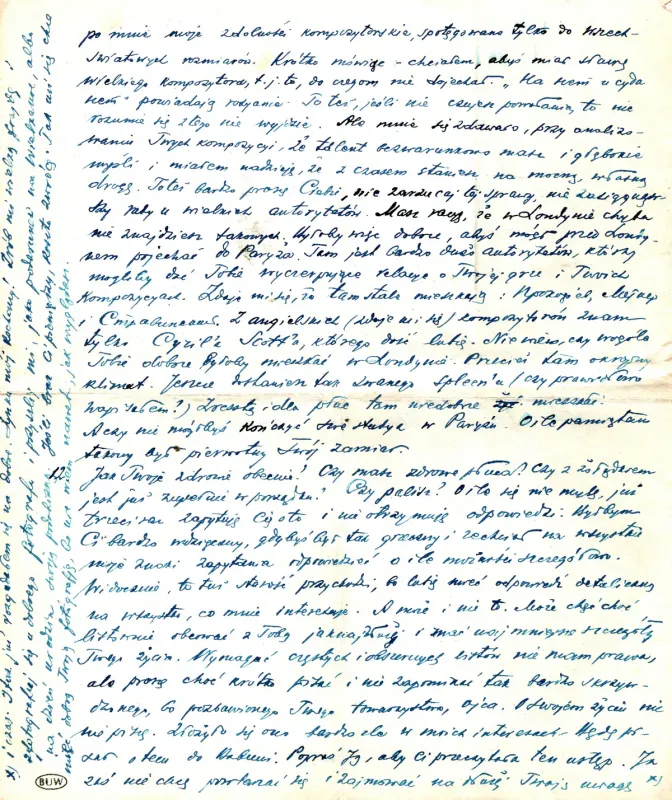 po mnie moje zdolności kompozytorskie, spotęgowane tylko do wszech-
światowych rozmiarów. Krótko mówiąc - chciałem, abyś miał sławę
wielkiego kompozytora, t. j. to, do czego nie dojechał. „Na niem i cyda
niem" powiadają rodzanie. To też, jeśli nie czujesz powołania, to nie
rozumie się z tego nie wyjdzie. Ale mnie się zdawało, przy analizo-
waniu Twych kompozycji, że talent bezwarunkowo masz i głębokie
myśli i miałem nadzieję, że z czasem staniesz na mocną, własną
drogę. Toteż bardzo proszę Ciebie, nie zarzucaj tej sprawy, nie zasięgnąw-
szy rady u wielkich autorytetów. Masz rację, że w Londynie chyba
nie znajdziesz takowych. Byłoby więc dobrze, abyś mógł przed Londy-
nem pojechać do Paryża. Tam jest bardzo dużo autorytetów, którzy
mogliby dać Tobie wyczerpujące relacje o Twojej grze i Twoich
kompozycjach. Zdaje mi się, że tam stale mieszkają:
i Z angielskich (zdaje mi się) kompozytorów znam
tylko Cyril'a Scott'a, którego dość lubię. Nie wiem, czy wogóle
Tobie dobrze byłoby mieszkać w Londynie. Przecież tam okropny
klimat. Jeszcze dostaniesz tak zwanego Spleen'u (czy prawidłowo
napisałem?) Zresztą i dla płuc tam niedobrze mieszkać.
A czy nie mógłbyś kończyć swe studja w Paryżu. O ile pamiętam
takowy był pierwotny Twój zamiar.
Jak Twoje zdrowie obecnie? Czy masz zdrowe płuca? Czy z żołądkiem
jest już zupełnie w porządku? Czy palisz? O ile się nie mylę, już
trzeci raz zapytuję Cię o to i nie otrzymuję odpowiedzi. Byłbym
Ci bardzo wdzięczny, gdybyś był tak grzeczny i zechciał na wszystkie
moje zapytania odpowiedzieć o ile możności szczegółowo.
Widocznie, to już starość przychodzi, bo lubię mieć odpowiedź detaliczną
na wszystko, co mnie interesuje. A może i nie to. Może chęć choć
listownie obcować z Tobą jaknajdłużej i znać najmniejsze szczegóły
Twego życia. Wymagać częstych i obszernych listów nie mam prawa,
ale proszę choć krótko pisać i nie zapominać tak bardzo skrzyw-
dzonego, bo pozbawionego Twego towarzystwa, ojca. O swojem życiu nic
nie piszę. Złożyło się ono bardzo źle w moich interesach. Będę pi-
sał o tem do Babuni. Poproś Ją, aby Ci przeczytała ten ustęp. Ja
zaś nie chcę powtarzać się i zajmować na dłużej Twoją uwagę x)
x) i czas. I tak już rozgadałem się na dobre. Synu mój kochany! Zrób mi wielką grzeczność
sfotografuj się u dobrego fotografa i przyślij mi, jako podarunek na gwiazdkę, albo
na dzień urodzin swoją podobiznę. Jeśli brak Ci pieniędzy, koszta zwrócę. Tak mi się chce
mieć dobrą Twoją fotografję, bo nie wiem nawet, jak wyglądasz.
BUW